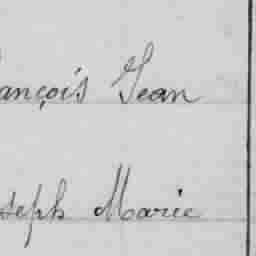 ançois Jean
seph Marie